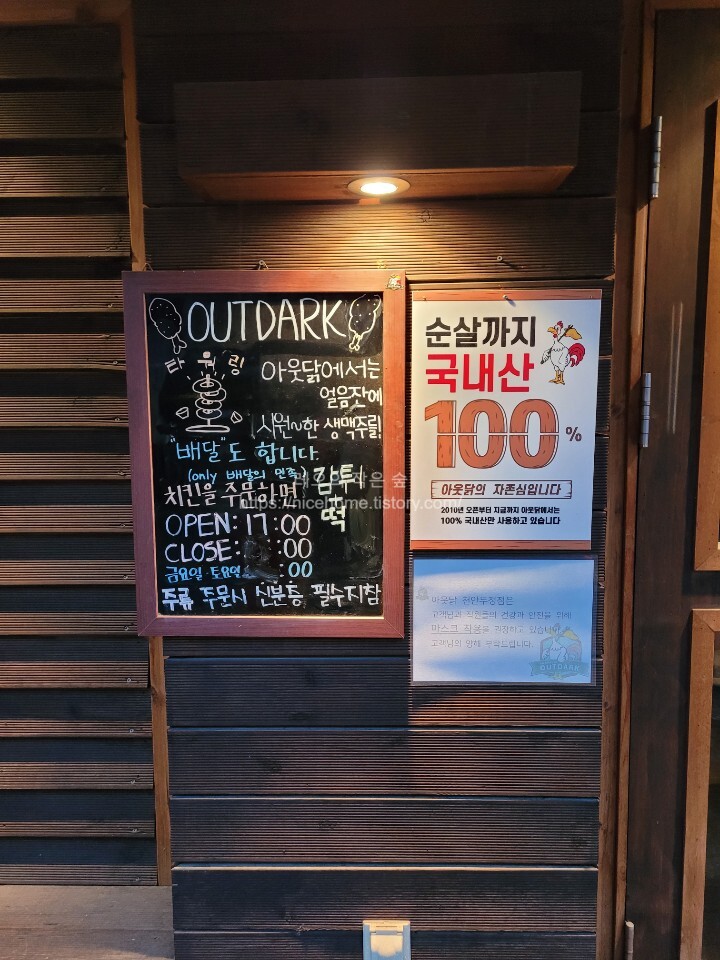 OUTDARK
타워링
아웃닭에서는
얼음잔에
시원~한 생맥주를!
"배달"도 합니다.
(only 배달의 민족)
치킨을 주문하면
감튀
+
떡
OPEN: 17:00
CLOSE: :00
금요일 토요일 :00
주류 주문시 신분증 필수지참
은 숲
https://nicehome.tistory.com/
순살까지
국내산
100%
아웃닭의 자존심입니다
2010년 오픈부터 지금까지 아웃닭에서는
100% 국내산만 사용하고 있습니다
아웃닭 천안두정점은
고객님과 직원들의 건강과 안전을 위해
마스크 착용을 권장하고 있습니다
고객님의 양해 부탁드립니다.
OUTDARK